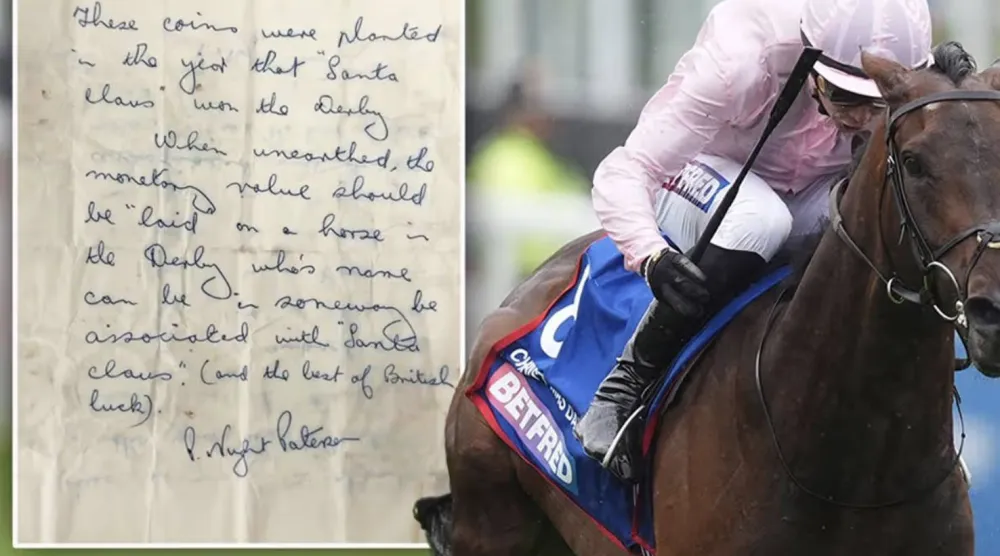 These coins were planted
in the year that "Santa
claus" won the Derby
When unearthed, the
monetary value should
be "laid on a horse in
the Derby who's name
can be in someway be
associated with "Santa
claus". (and the best of British
luck).
P.
BETFRED